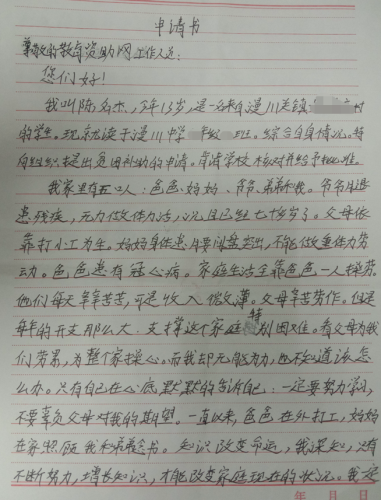 申请书
尊敬的教育资助网工作人员:
您们好!
我叫陈名杰,今年13岁,是一名来自漫川关镇 村
的学生。现就读于漫川中学 年级 班。综合自身情况,特
向组织提出贫困补助的申请。肯请学校核对并给予批准。
我家里有五口人:爸爸、妈妈、爷爷、弟弟和我。爷爷周身
患残疾,无力做体力活,况且已经七十多岁了。父母依
靠打小工为生。妈妈身体患腰间盘突出,不能做重体力劳
动。爸爸患有冠心病。家庭生活全靠爸爸一人操劳。
他们每天辛辛苦苦,可是收入微薄。父母辛苦劳作。但是
每年的开支那么大,支撑这个家庭特别困难。看父母为我
们劳累,为整个家操心。而我却无能为力,也不知道该怎
么办。只有自己在心底默默的告诉自己:一定要努力学习,
不要辜负父母对我的期望。一直以来,爸爸在外打工,妈妈
在家照顾我和弟弟念书。知识改变命运,我深知,只有
不断努力,增长知识,才能改变家庭现在的状况。我
年 月 日